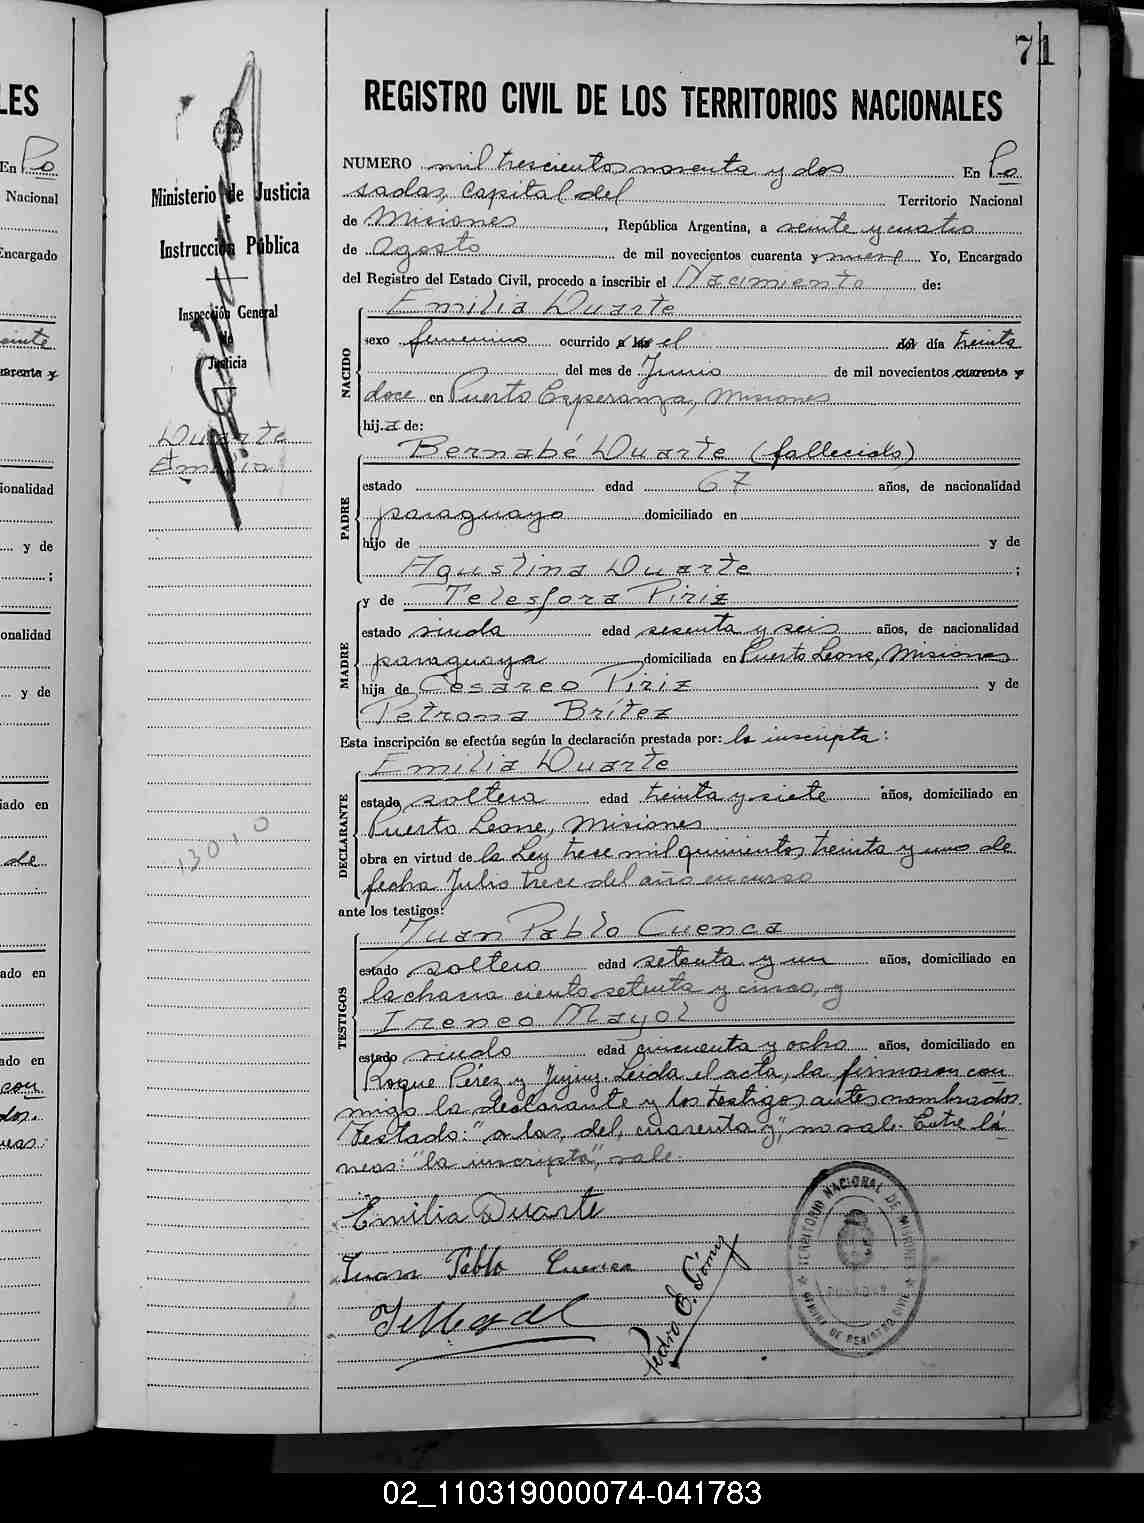 71
REGISTRO CIVIL DE LOS TERRITORIOS NACIONALES
NUMERO mil trescientos noventa y dos En Po
sadas, capital del Territorio Nacional
de Misiones, República Argentina, a veinte y cuatro
de Agosto de mil novecientos cuarenta y nueve Yo, Encargado
del Registro del Estado Civil, procedo a inscribir el Nacimiento de:
Emilia Duarte
NACIDO
sexo femenino ocurrido a las el del día treinta
del mes de Junio de mil novecientos cuarenta y
doce en Puerto Esperanza, Misiones
hija de:
Bernabé Duarte (fallecido)
PADRE
estado edad 67 años, de nacionalidad
paraguayo domiciliado en
hijo de y de
Agustina Duarte;
y de Telesfora Piriz
MADRE
estado viuda edad sesenta y seis años, de nacionalidad
paraguaya domiciliada en Puerto Leone, Misiones
hija de Cesareo Piriz y de
Petrona Brítez
Esta inscripción se efectúa según la declaración prestada por: la inscripta:
Emilia Duarte
DECLARANTE
estado soltera edad treinta y siete años, domiciliado en
Puerto Leone, Misiones
obra en virtud de la Ley trece mil quinientos treinta y uno de
fecha Julio trece del año en curso
ante los testigos:
Juan Pablo Cuenca
TESTIGOS
estado soltero edad setenta y un años, domiciliado en
la chacra ciento setenta y cinco, y
Ireneo Mayol
estado viudo edad cincuenta y ocho años, domiciliado en
Roque Pérez y Jujuy. Leída el acta, la firmaron con
migo la declarante y los testigos antes nombrados.
Testado: "a las, del, cuarenta y", no vale. Entre lí-
neas: "la inscripta", vale.
Emilia Duarte
Juan Pablo Cuenca
Pedro E. Gómez
TERRITORIO NACIONAL DE MISIONES
OFICINA DE REGISTRO CIVIL
Ministerio de Justicia
e
Instrucción Pública
Inspección General
de
Justicia
Duarte
Emilia
LES
En Po
Nacional
Encargado
veinte
cuarenta y
ionalidad
y de
;
onalidad
y de
iado en
de
ado en
ado en
con
dos.
neas:
02_110319000074-041783